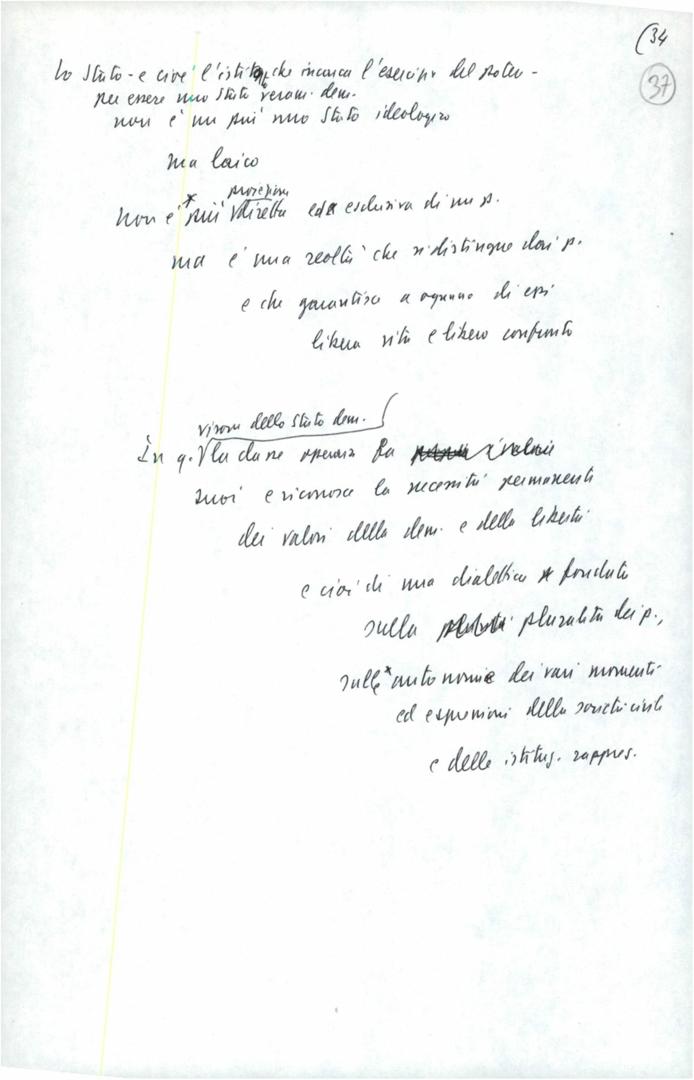 (34
37
Lo Stato - e cioè l'istituz. che incarna l'esercizio del potere -
per essere uno Stato veram. dem.
non è un più uno Stato ideologico
ma laico
proiezione
non è più diretta ed esclusiva di un p.
ma è una realtà che si distingue dai p.
e che garantisce a ognuno di essi
libera vita e libero confronto
visione dello Stato dem.
In q. la classe operaia fa i valori
suoi e riconosce la necessità permanente
dei valori della dem. e della libertà
e cioè di una dialettica fondata
sulla pluralità dei p.,
sulle autonomie dei vari momenti
ed espressioni della società civile
e delle istituz. rappres.